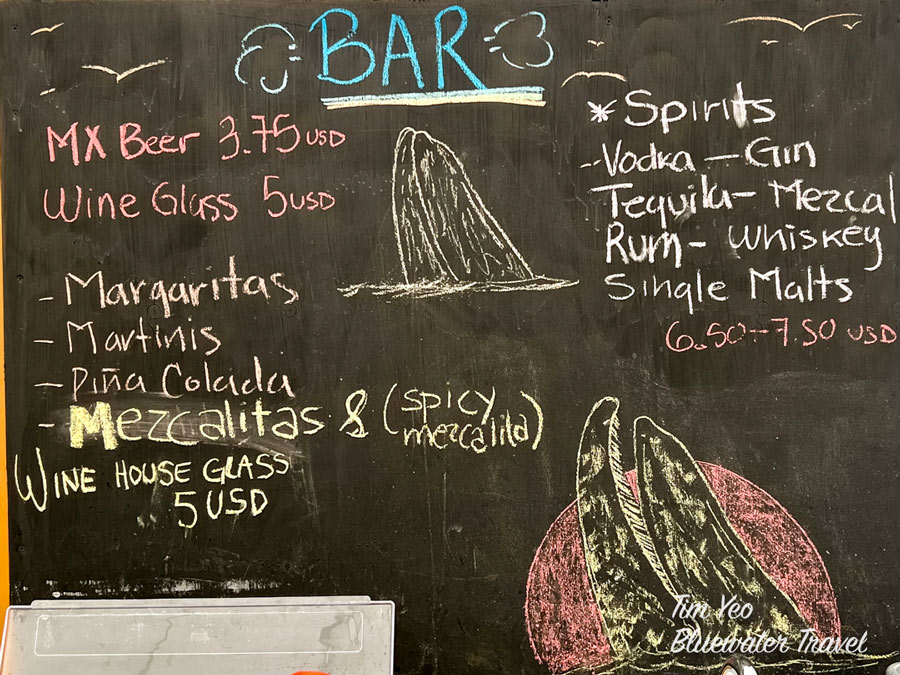 BAR
MX Beer 3.75 USD
Wine Glass 5 USD
- Margaritas
- Martinis
- Piña Colada
- Mezcalitas & (spicy mezcalita)
WINE HOUSE GLASS
5 USD
* Spirits
- Vodka - Gin
Tequila - Mezcal
Rum - Whiskey
Single Malts
6.50 - 7.50 USD
Tim Yeo
Bluewater Travel